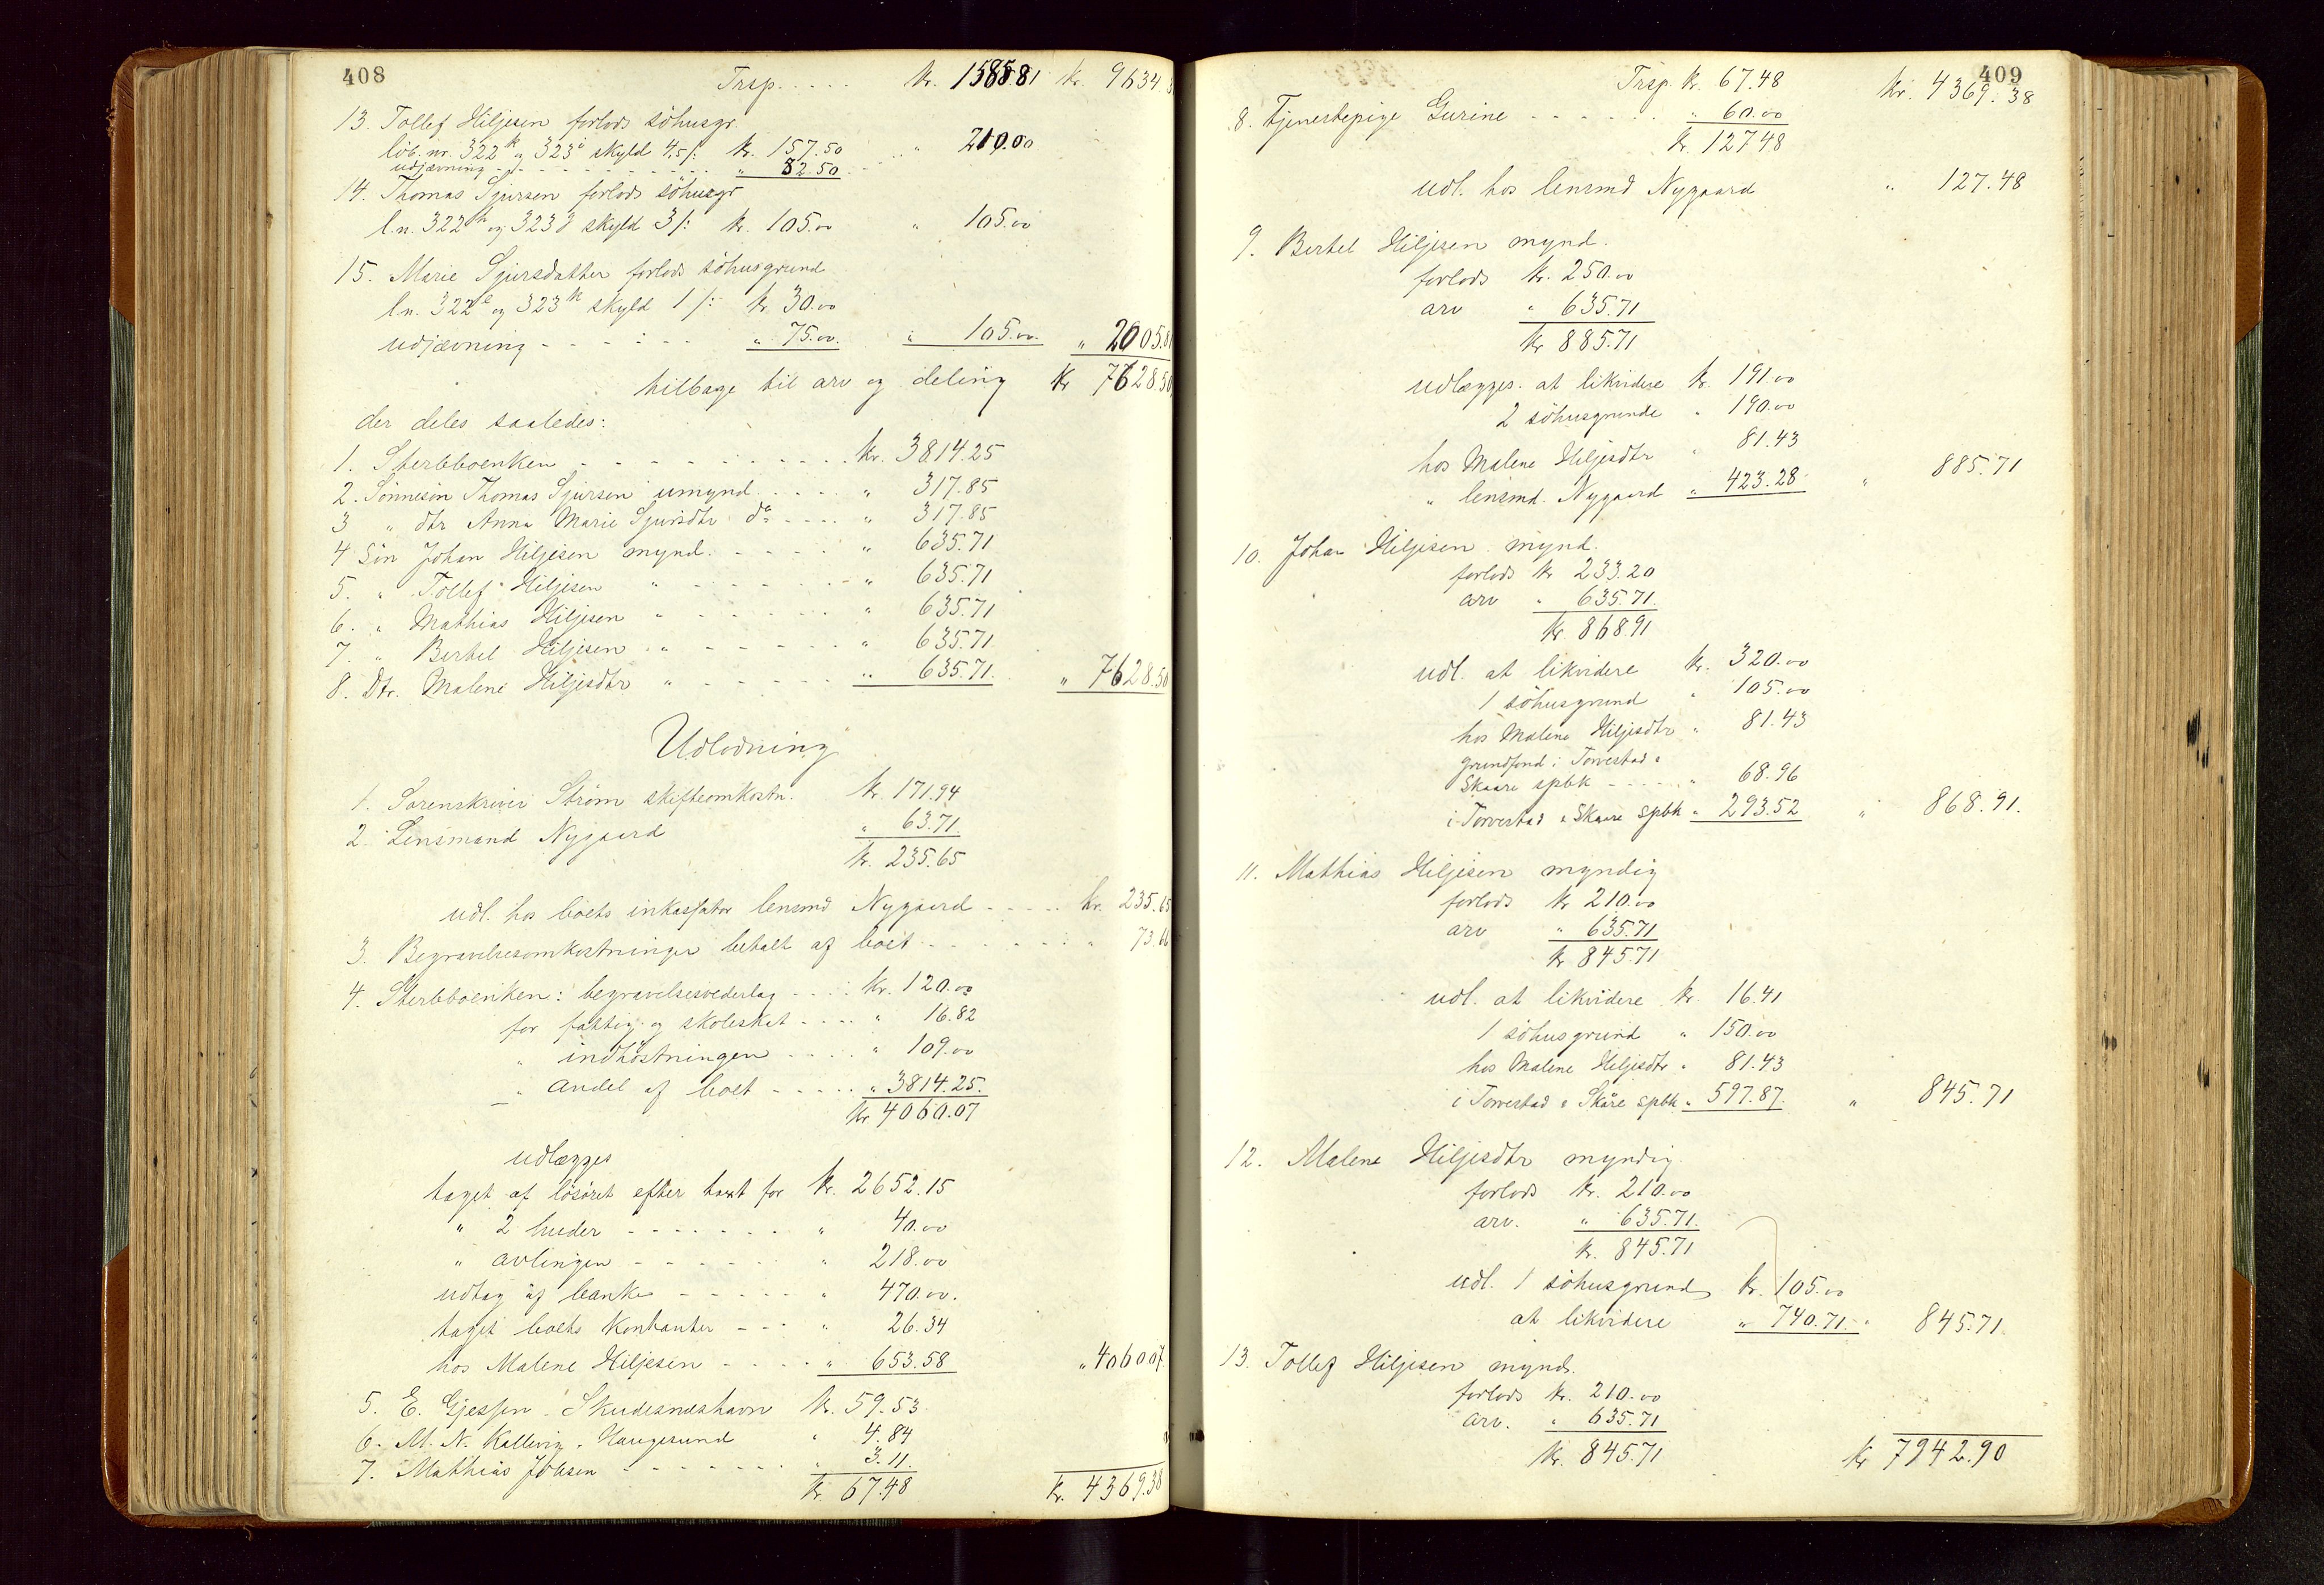 408
Trsp. .... kr. 1585.81 kr. 9634.
13. Tollef Hiljesen forlods söhusgr.
löb. nr. 322 k og 323 i skyld 4,5 /: kr. 157.50 " 210.00
udjævning - - - - " 52.50
14. Thomas Sjursen forlods söhusgr
l.n. 322 h og 323 g skyld 3 /: kr. 105.00 " 105.00
15. Marie Sjursdatter forlods söhusgrund
l.n. 322 l og 323 k skyld 1 /: kr. 30.00
udjævning - - - - " 75.00. " 105.00. " 2005.81
tilbage til arv og deling kr 7628.50
der deles saaledes:
1. Sterbboenken - - - - kr. 3814.25
2. Sönnesön Thomas Sjursen umynd. - - - " 317.85
3 " dtr Anna Marie Sjursdtr do - - - " 317.85
4 Sön Johan Hiljesen mynd. - - - - " 635.71
5. " Tollef Hiljesen " - - - - " 635.71
6. " Mathias Hiljesen " - - - - " 635.71
7. " Bertel Hiljesen " - - - - " 635.71
8. Dtr. Malene Hiljesdtr " - - - - " 635.71. " 7628.50
Udlodning
1. Sorenskriver Ström skifteomkostn. kr. 171.94
2. Lensmand Nygaard " 63.71.
kr. 235.65
udl. hos boets inkassator lensmd Nygaard - - - kr. 235.65
3. Begravelsesomkostninger betalt af boet - - - - " 73.66
4. Sterbboenken: begravelsesvederlag - - - kr. 120.00
for fattig og skoleskat - - - " 16.82
" indhöstningen - - - " 109.00
" andel af boet - - - " 3814.25.
kr. 4060.07
udlægges
taget af lösöret efter taxt for kr. 2652.15
" 2 huder - - - - " 40.00
" avlingen - - - - " 218.00
udtag af banken - - - - " 470.00.
taget boets kontanter - - - " 26.34
hos Malene Hiljesen - - - - " 653.58 " 4060.07.
5. E. Gjessen Skudesneshavn kr. 59.53
6. M. N. Kallevig, Haugesund " 4.84
7. Matthias Jobsen - - - - " 3.11.
kr. 67.48 kr. 4369.38
409
Trsp. kr. 67.48 kr. 4369.38
8. Tjenestepige Gurine - - - - " 60.00
kr. 127.48
udl. hos lensmd Nygaard " 127.48
9. Bertel Hiljesen mynd.
forlods kr. 250.00
arv " 635.71
kr 885.71
udlægges. at likvidere kr. 191.00
2 söhusgrunde " 190.00
hos Malene Hiljesdtr " 81.43
" lensmd. Nygaard " 423.28. " 885.71
10. Johan Hiljesen mynd.
forlods kr 233.20
arv " 635.71.
kr. 868.91
udl. at likvidere kr. 320.00
1 söhusgrund " 105.00
hos Malene Hiljesdtr " 81.43
grundfond i Torvestad &
Skaare spbk - - - - " 68.96
i Torvestad & Skaare spbk " 293.52 " 868.91.
11. Mathias Hiljesen myndig
forlods kr 210.00
arv " 635.71
kr 845.71
udl. at likvidere kr. 16.41
1 söhusgrund " 150.00
hos Malene Hiljesdtr " 81.43
i Torvestad & Skåre spbk " 597.87. " 845.71
12. Malene Hiljesdtr myndig.
forlods kr. 210.00
arv. " 635.71.
kr. 845.71
udl. 1 söhusgrund kr. 105.00
at likvidere " 740.71. " 845.71.
13. Tollef Hiljesen mynd.
forlods kr. 210.00
arv. " 635.71
kr. 845.71 kr 7942.90